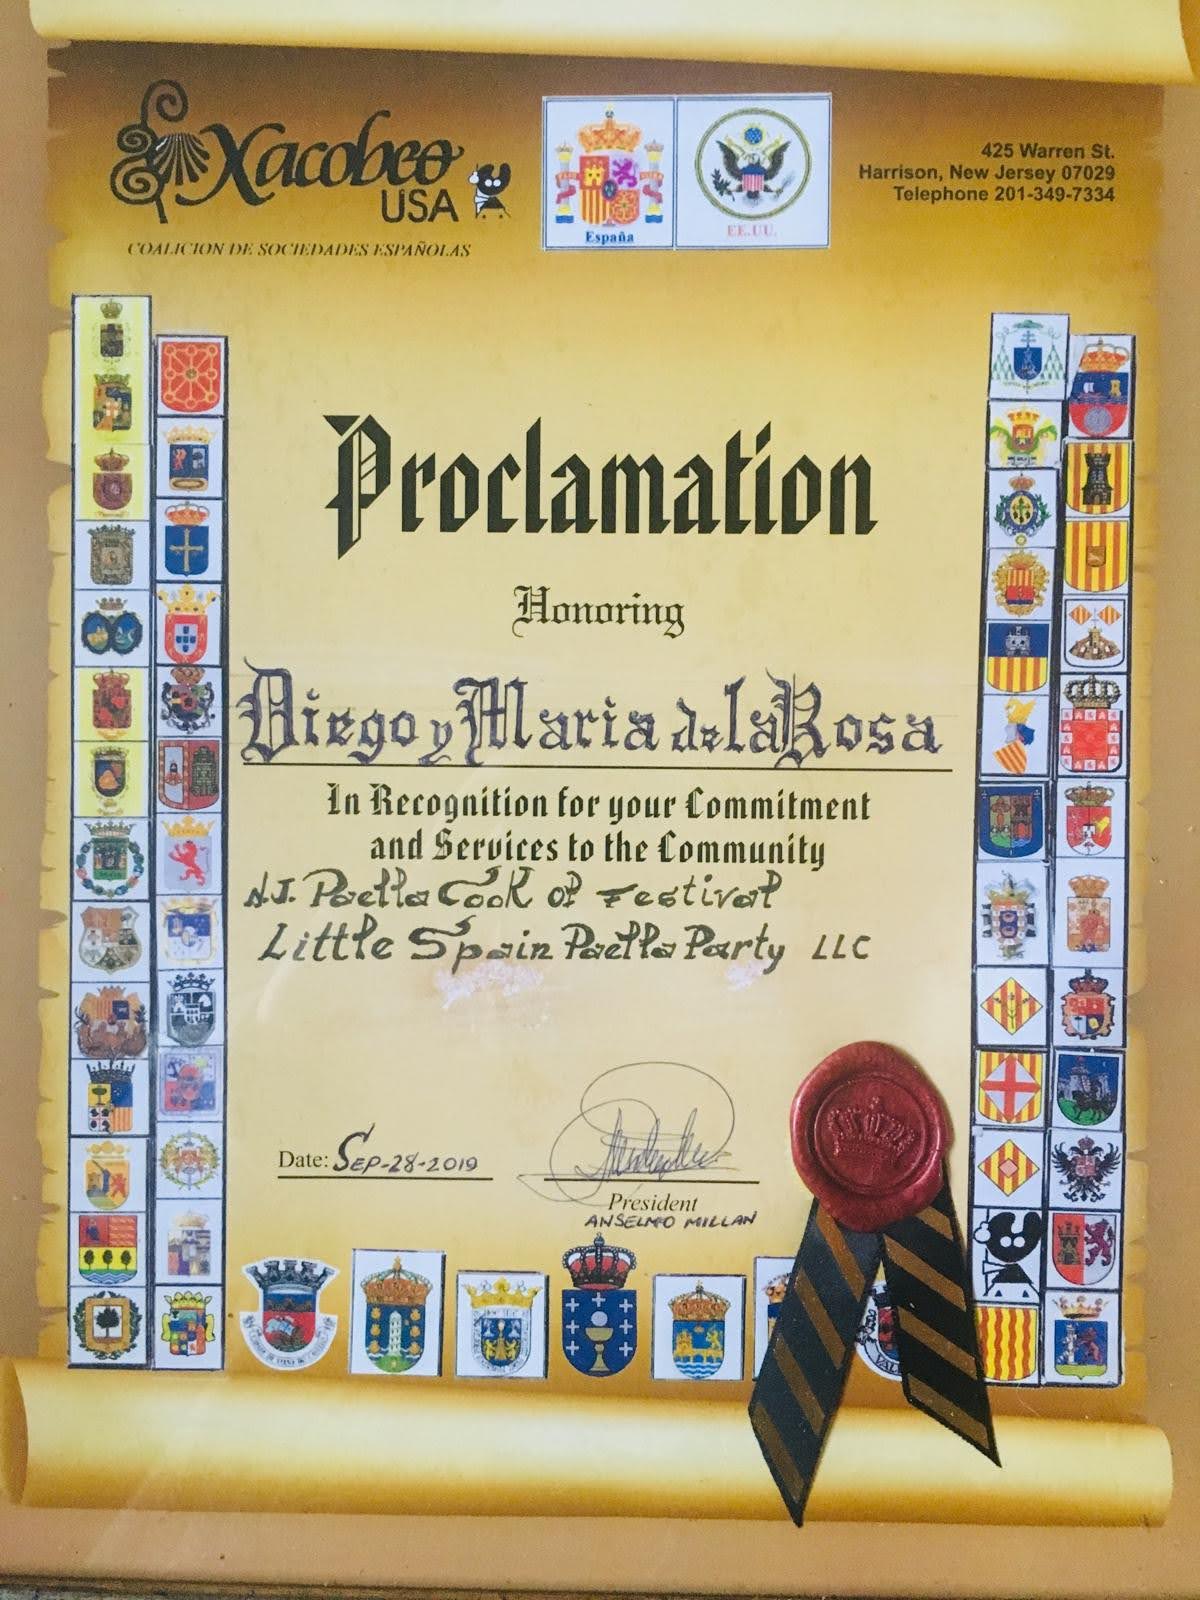 Xacobeo
USA
COALICION DE SOCIEDADES ESPAÑOLAS
España
EE.UU.
425 Warren St.
Harrison, New Jersey 07029
Telephone 201-349-7334
Proclamation
Honoring
Diego y Maria de la Rosa
In Recognition for your Commitment
and Services to the Community
N.J. Paella Cook of Festival
Little Spain Paella Party LLC
Date: SEP-28-2019
President
ANSELMO MILLAN